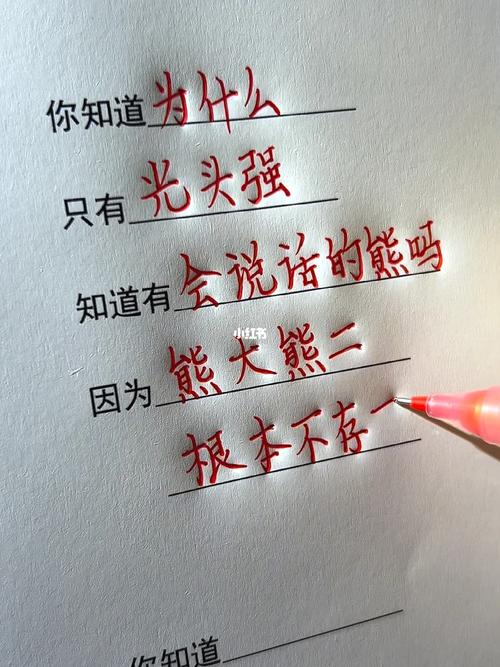 你知道为什么
只有光头强
知道有会说话的熊吗
小红书
因为熊大熊二
根本不存
你知道